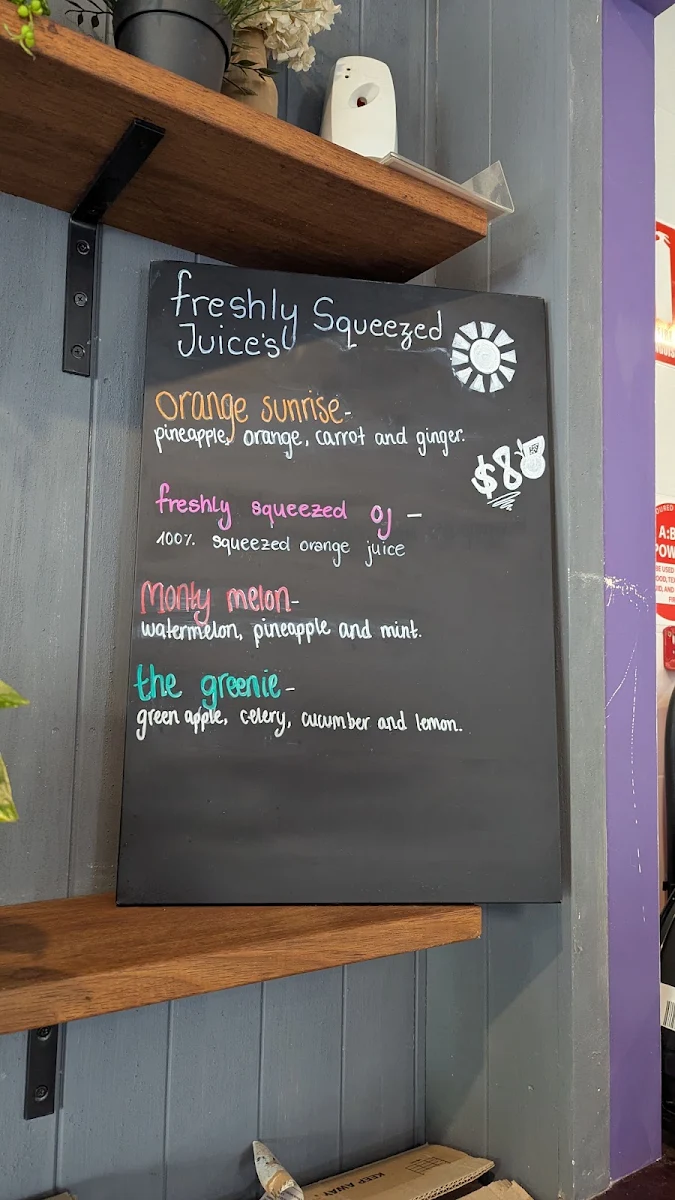 freshly Squeezed
Juice's
orange sunrise-
pineapple, orange, carrot and ginger.
$8
freshly squeezed oj -
100% squeezed orange juice
Monty melon-
watermelon, pineapple and mint.
the greenie -
green apple, celery, cucumber and lemon.
KEEP AWAY